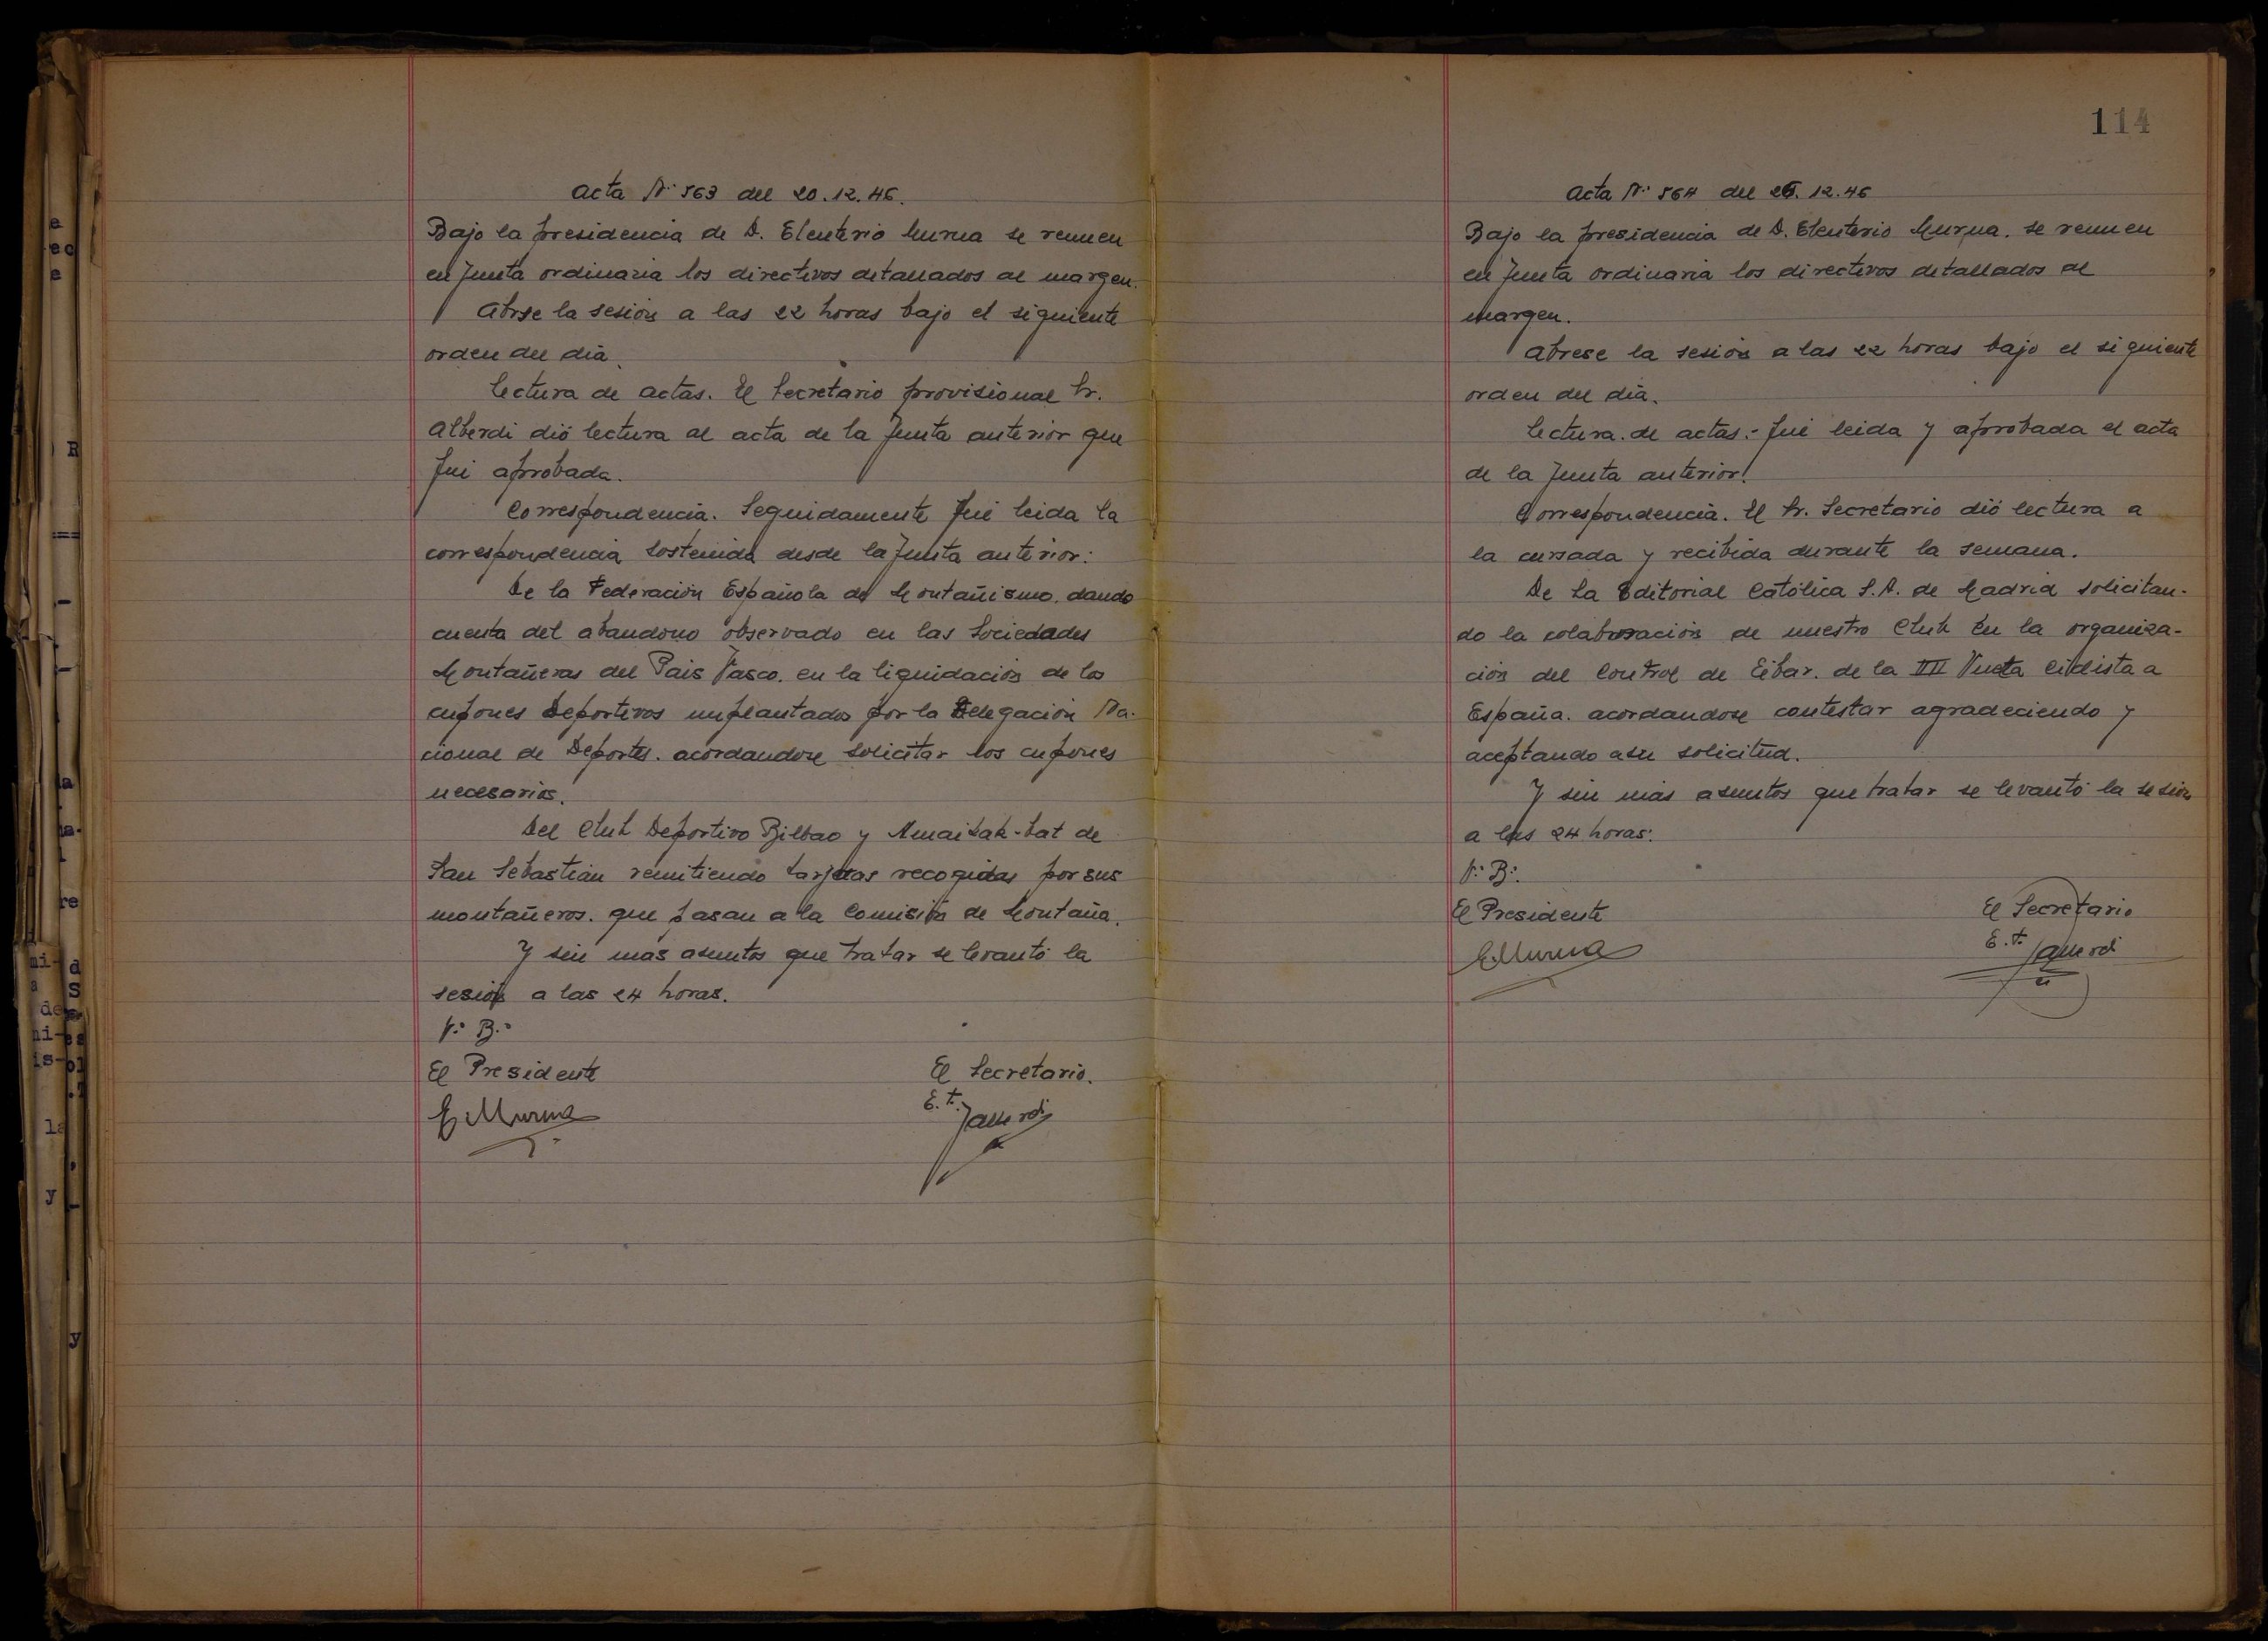 Acta Nº 563 del 20.12.46.
Bajo la presidencia de D. Eleuterio Murua se reunen
en Junta ordinaria los directivos detallados al margen.
Abrse la sesión a las 22 horas bajo el siguiente
orden del dia.
Lectura de actas. El Secretario provisional Sr.
Alberdi dió lectura al acta de la Junta anterior que
fui aprobada.
Correspondencia. Seguidamente fui leida la
correspondencia sostenida desde la Junta anterior:
De la Federación Española de Montañismo. dando
cuenta del abandono observado en las Sociedades
Montañeras del Pais Vasco. en la liquidación de los
cupones Deportivos implantados por la Delegación Na-
cional de Deportes. acordandose solicitar los cupones
necesarios.
Del Club Deportivo Bilbao y Amaikak-bat de
San Sebastián remitiendo tarjetas recogidas por sus
montañeros. que pasan a la Comisión de Montaña.
Y sin más asuntos que tratar se levantó la
sesión a las 24 horas.
Vº Bº
El Presidente
El Secretario.
E. Murua
E. t.
114
Acta Nº 564 del 26.12.46
Bajo la presidencia de D. Eleuterio Murua. se reunen
en Junta ordinaria los directivos detallados al
margen.
Abrese la sesión a las 22 horas bajo el siguiente
orden del dia.
Lectura. de actas.- fui leida y aprobada el acta
de la Junta anterior.
Correspondencia. El Sr. Secretario dió lectura a
la cursada y recibida durante la semana.
De La Editorial Católica S.A. de Madrid solicitan-
do la colaboración de nuestro Club en la organiza-
ción del Control de Eibar. de la VII Vuelta ciclista a
España. acordandose contestar agradeciendo y
aceptando a su solicitud.
Y sin más asuntos que tratar se levantó la sesión
a las 24 horas.
Vº Bº
El Presidente
El Secretario
E. Murua
E. t.